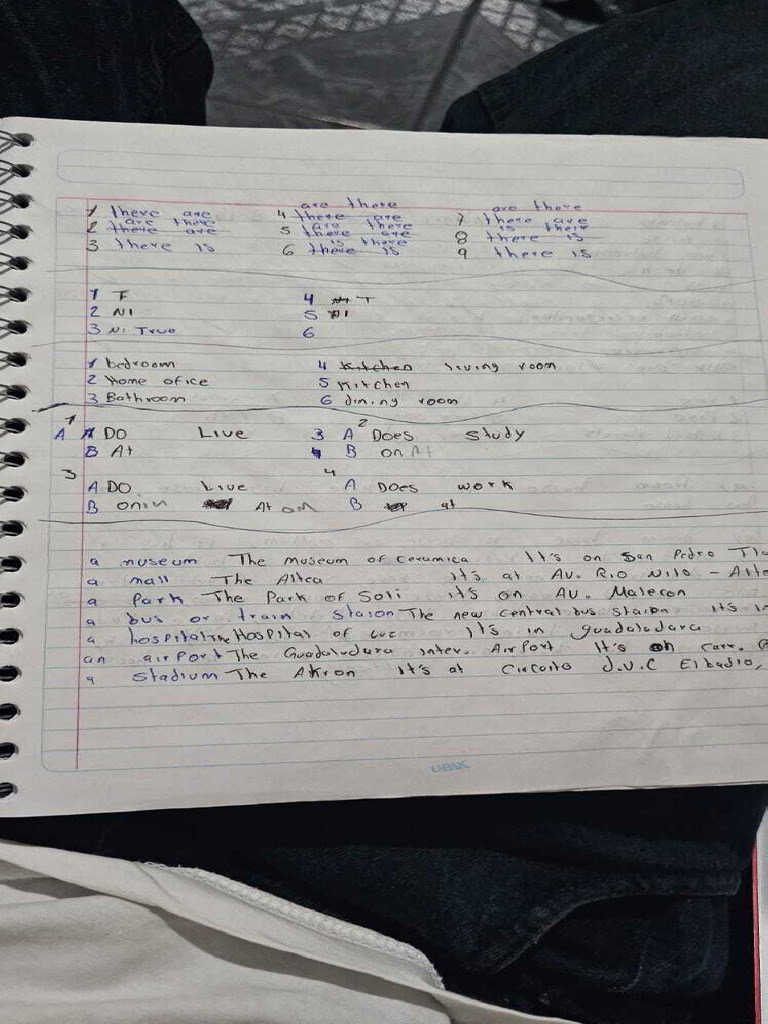 are there are there
1 there are 4 there are 7 there are
are there are there is there
2 there are 5 there are 8 there is
is there
3 there is 6 there is 9 there is
1 T 4 T
2 NI 5 NI
3 NI True 6
1 bedroom 4 kitchen living room
2 Home ofice 5 Kitchen
3 Bathroom 6 dining room
1 2
A DO Live 3 A Does study
B At B on At
3 4
A DO Live A Does work
B on in At on B at
a museum The museum of ceramica It's on San Pedro
a mall The Altea It's at AV. RIO NILO -
a Park The Park of Soli it's on AV. Malecon
a bus or train staion The new central bus staion its
a hospital The Hospital of It's in guadaladara
an airport The Guadaludara inter. AirPort It's on carr.
a stadium The Akron it's at Circoito J.V.C